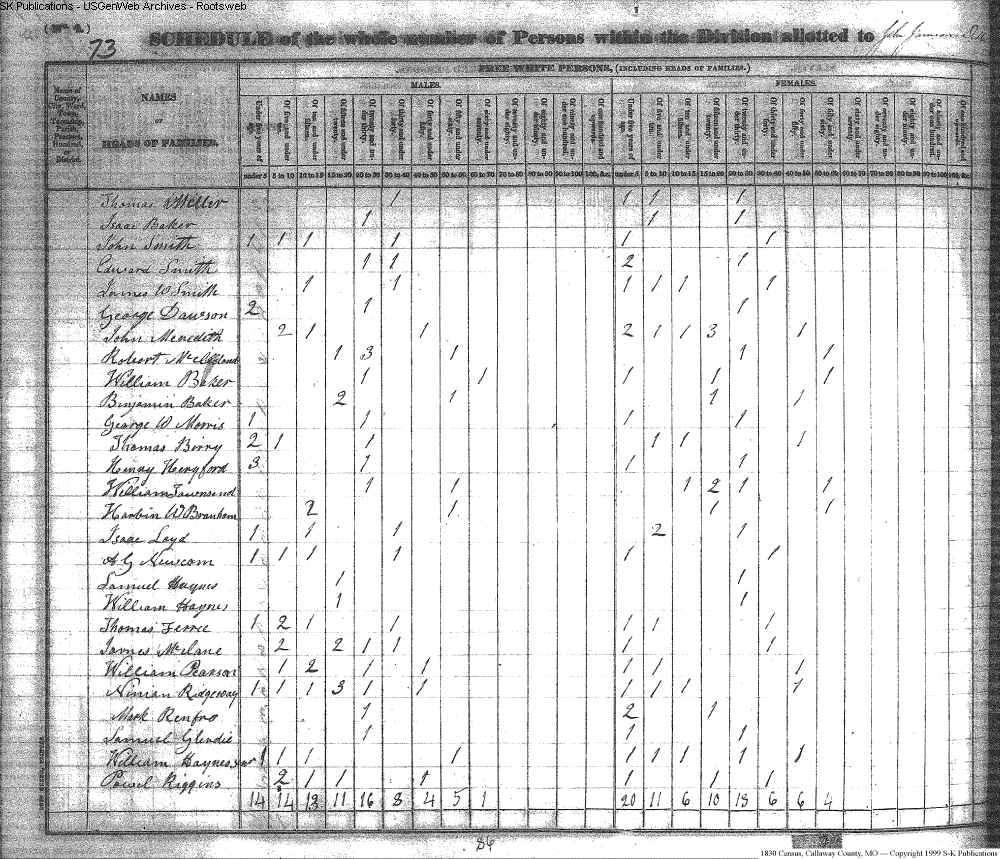 SK Publications - USGenWeb Archives - Rootsweb
(No. 4.)
73
SCHEDULE of the whole number of Persons within the Division allotted to John Jameson
FREE WHITE PERSONS, (INCLUDING HEADS OF FAMILIES.)
MALES. FEMALES.
Name of County, City, Ward, Town, Township, Parish, Precinct, Hundred, or District.
NAMES
OF
HEADS OF FAMILIES.
under 5 5 to 10 10 to 15 15 to 20 20 to 30 30 to 40 40 to 50 50 to 60 60 to 70 70 to 80 80 to 90 90 to 100 100, &c. under 5 5 to 10 10 to 15 15 to 20 20 to 30 30 to 40 40 to 50 50 to 60 60 to 70 70 to 80 80 to 90 90 to 100 100, &c.
Thomas Miller 1 1 1 1
Isaac Baker 1 1 1
John Smith 1 1 1 1 1 1
Edward Smith 1 1 2 1
James W Smith 1 1 1 1 1 1
George Dawson 2 1 1
John Menedith 2 1 1 2 1 1 3 1
Robert McClelland 1 3 1 1 1
William Baker 1 1 1 1 1
Benjamin Baker 2 1 1 1
George W Morris 1 1 1 1
Thomas Berry 2 1 1 1 1 1
Henry Heryford 3 1 1 1
William Townsend 1 1 1 2 1 1
Harbin W Branham 2 1 1 1
Isaac Loyd 1 1 1 2 1
A G Newsom 1 1 1 1 1 1
Samuel Haynes 1 1
William Haynes 1 1
Thomas Ferree 1 2 1 1 1 1 1
James McClane 2 2 1 1 1 1
William Pearson 1 2 1 1 1 1 1
Ninian Ridgeway 1 1 1 3 1 1 1 1 1 1
Mark Renfro 1 2 1
Samuel Glendie 1 1 1
William Haynes snr 1 1 1 1 1 1 1 1 1
Powel Riggins 2 1 1 1 1 1 1
14 14 13 11 16 8 4 5 1 20 11 6 10 13 6 6 4
86
1830 Census, Callaway County, MO — Copyright 1999 S-K Publications